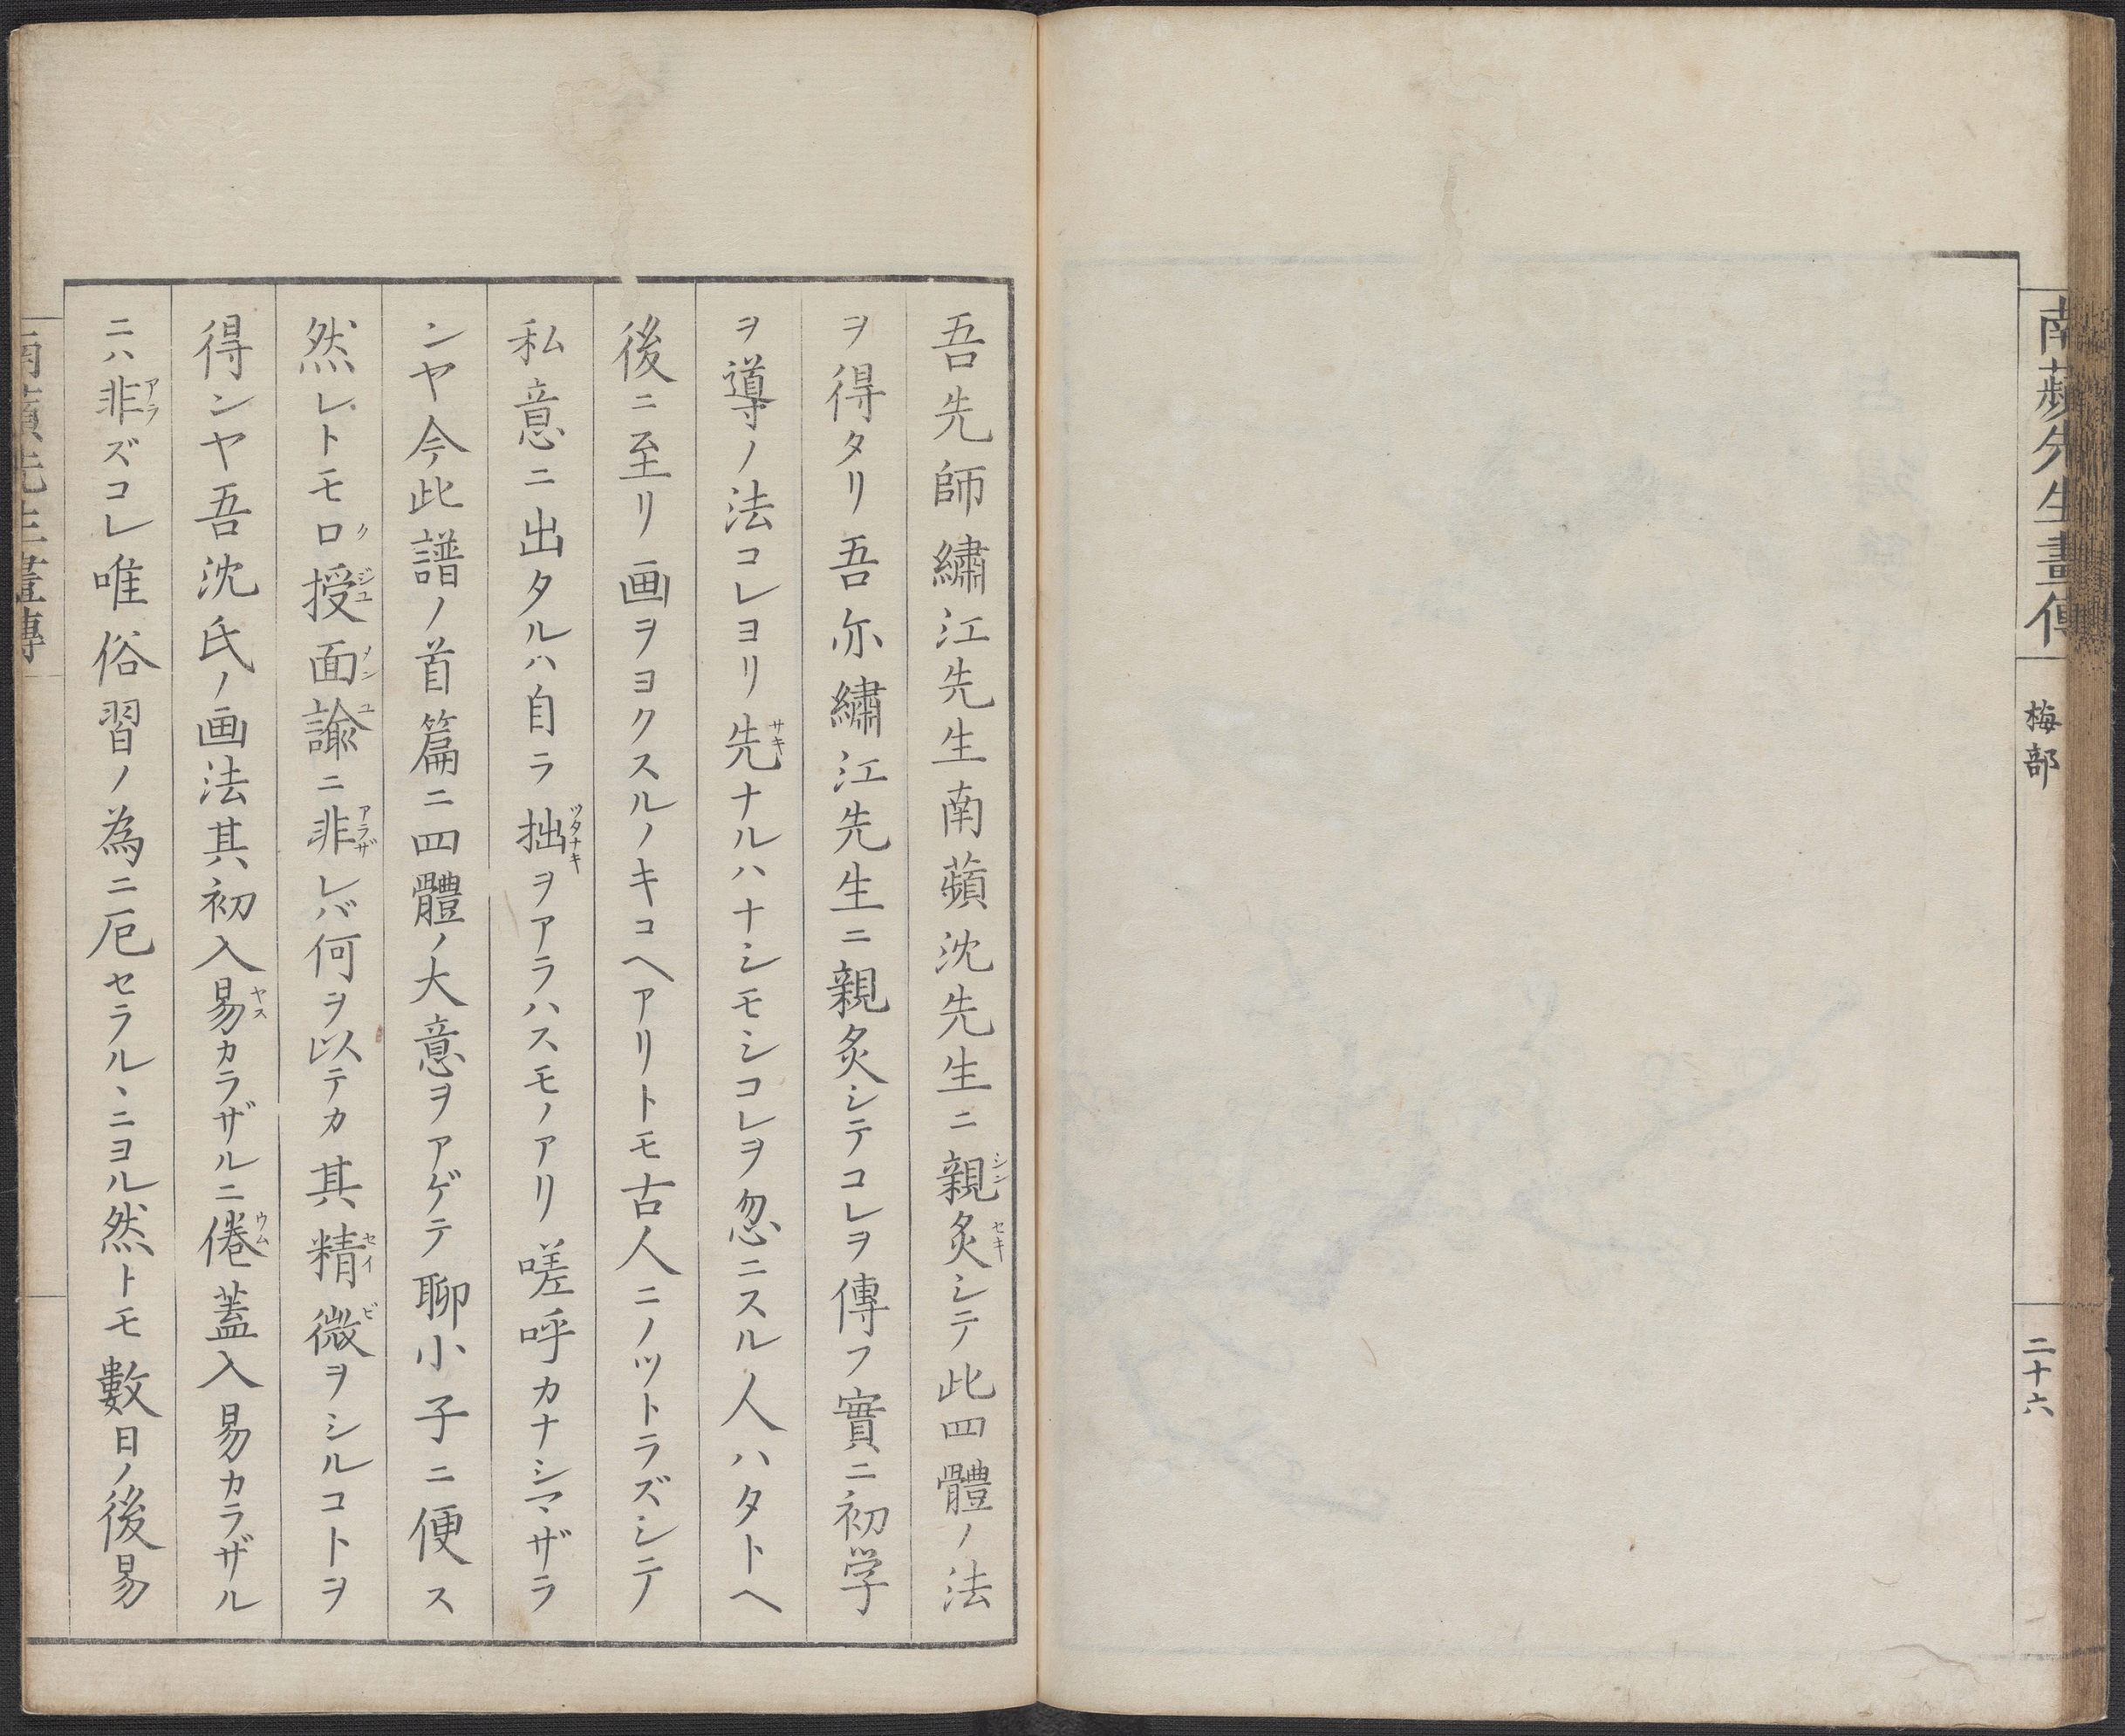 南蘋先生畫傳
梅部
二十六
吾先師繡江先生南蘋沈先生ニ親炙シテ此四體ノ法
シン
セキ
ヲ得タリ吾亦繡江先生ニ親炙シテコレヲ傳フ實ニ初学
ヲ導ノ法コレヨリ先ナルハナシモシコレヲ忽ニスル人ハタトヘ
サキ
後ニ至リ画ヲヨクスルノキコヘアリトモ古人ニノツトラズシテ
私意ニ出タルハ自ラ拙ヲアラハスモノアリ嗟呼カナシマザラ
ツタナキ
ンヤ今此譜ノ首篇ニ四體ノ大意ヲアゲテ聊小子ニ便ス
然レトモ口授面諭ニ非レバ何ヲ以テカ其精微ヲシルコトヲ
ク
ジユ
メン
ユ
アラザ
セイ
ビ
得ンヤ吾沈氏ノ画法其初入易カラザルニ倦蓋入易カラザル
ヤス
ウム
ニハ非ズコレ唯俗習ノ為ニ厄セラルヽニヨル然トモ數日ノ後易
アラ
南蘋先生畫傳